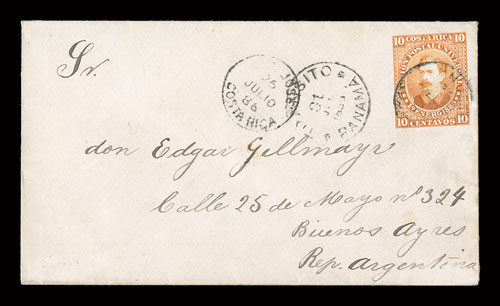 10 COSTA RICA 10
UNION POSTAL UNIVERSAL
10 CENTAVOS 10
25
JULIO
86
COSTA RICA
TRANSITO
PANAMA
Sr.
don Edgar Gellmayr
Calle 25 de Mayo nº 324
Buenos Ayres
Rep. Argentina